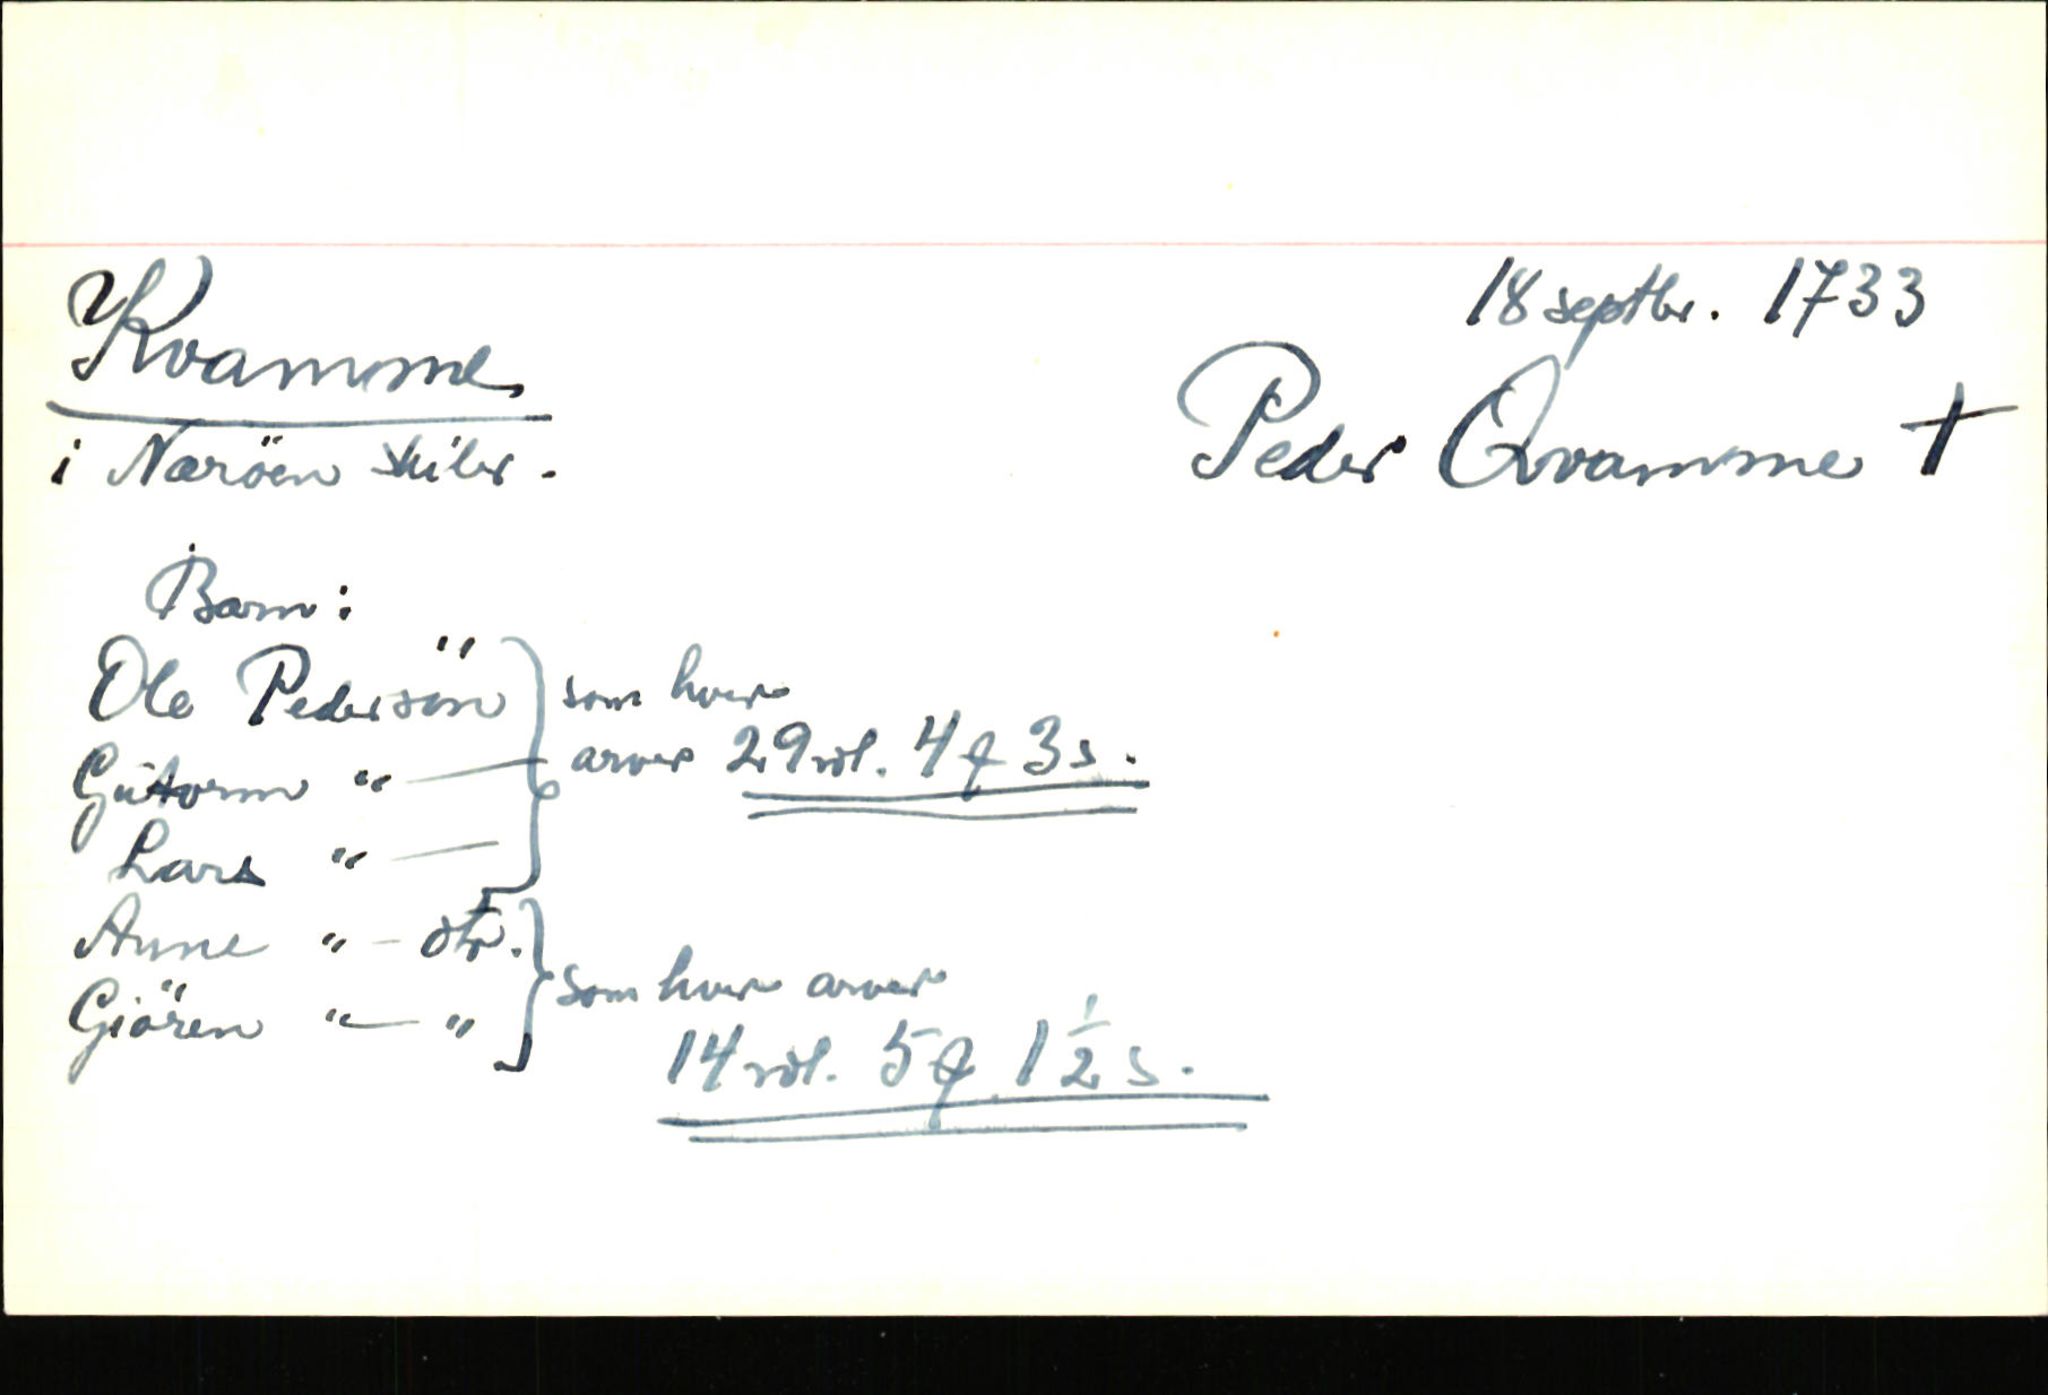 Kvamme
i Naröen skibr.
18 septbr. 1733
Peder Qvamme †
Barn:
Ole Pedersön } som hver
Gutorm " — arver 29 rdl. 4 ₰ 3 s.
Lars " —
Anne " - dtr. } som hver arver
Giören " — " 14 rdl. 5 ₰ 1 1/2 s.